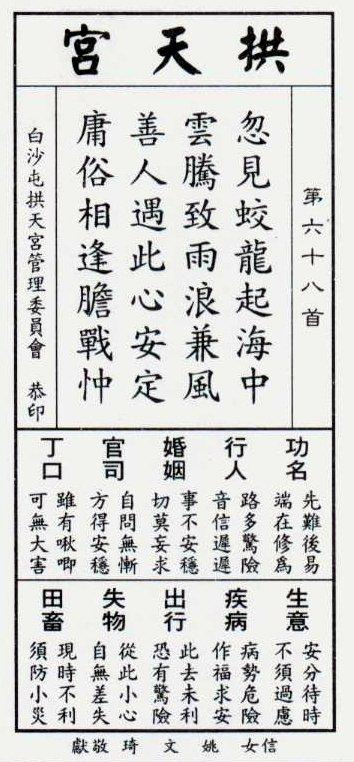 拱天宮
第六十八首
忽見蛟龍起海中
雲騰致雨浪兼風
善人遇此心安定
庸俗相逢膽戰忡
白沙屯拱天宮管理委員會 恭印
功名
先難後易
端在修為
行人
路多驚險
音信遲遲
婚姻
事不安穩
切莫妄求
官司
自問無慚
方得安穩
丁口
雖有啾唧
可無大害
生意
安分待時
不須過慮
疾病
病勢危險
作福求安
出行
此去未利
恐有驚險
失物
從此小心
自無差失
田畜
現時不利
須防小災
信女 姚文琦 敬獻